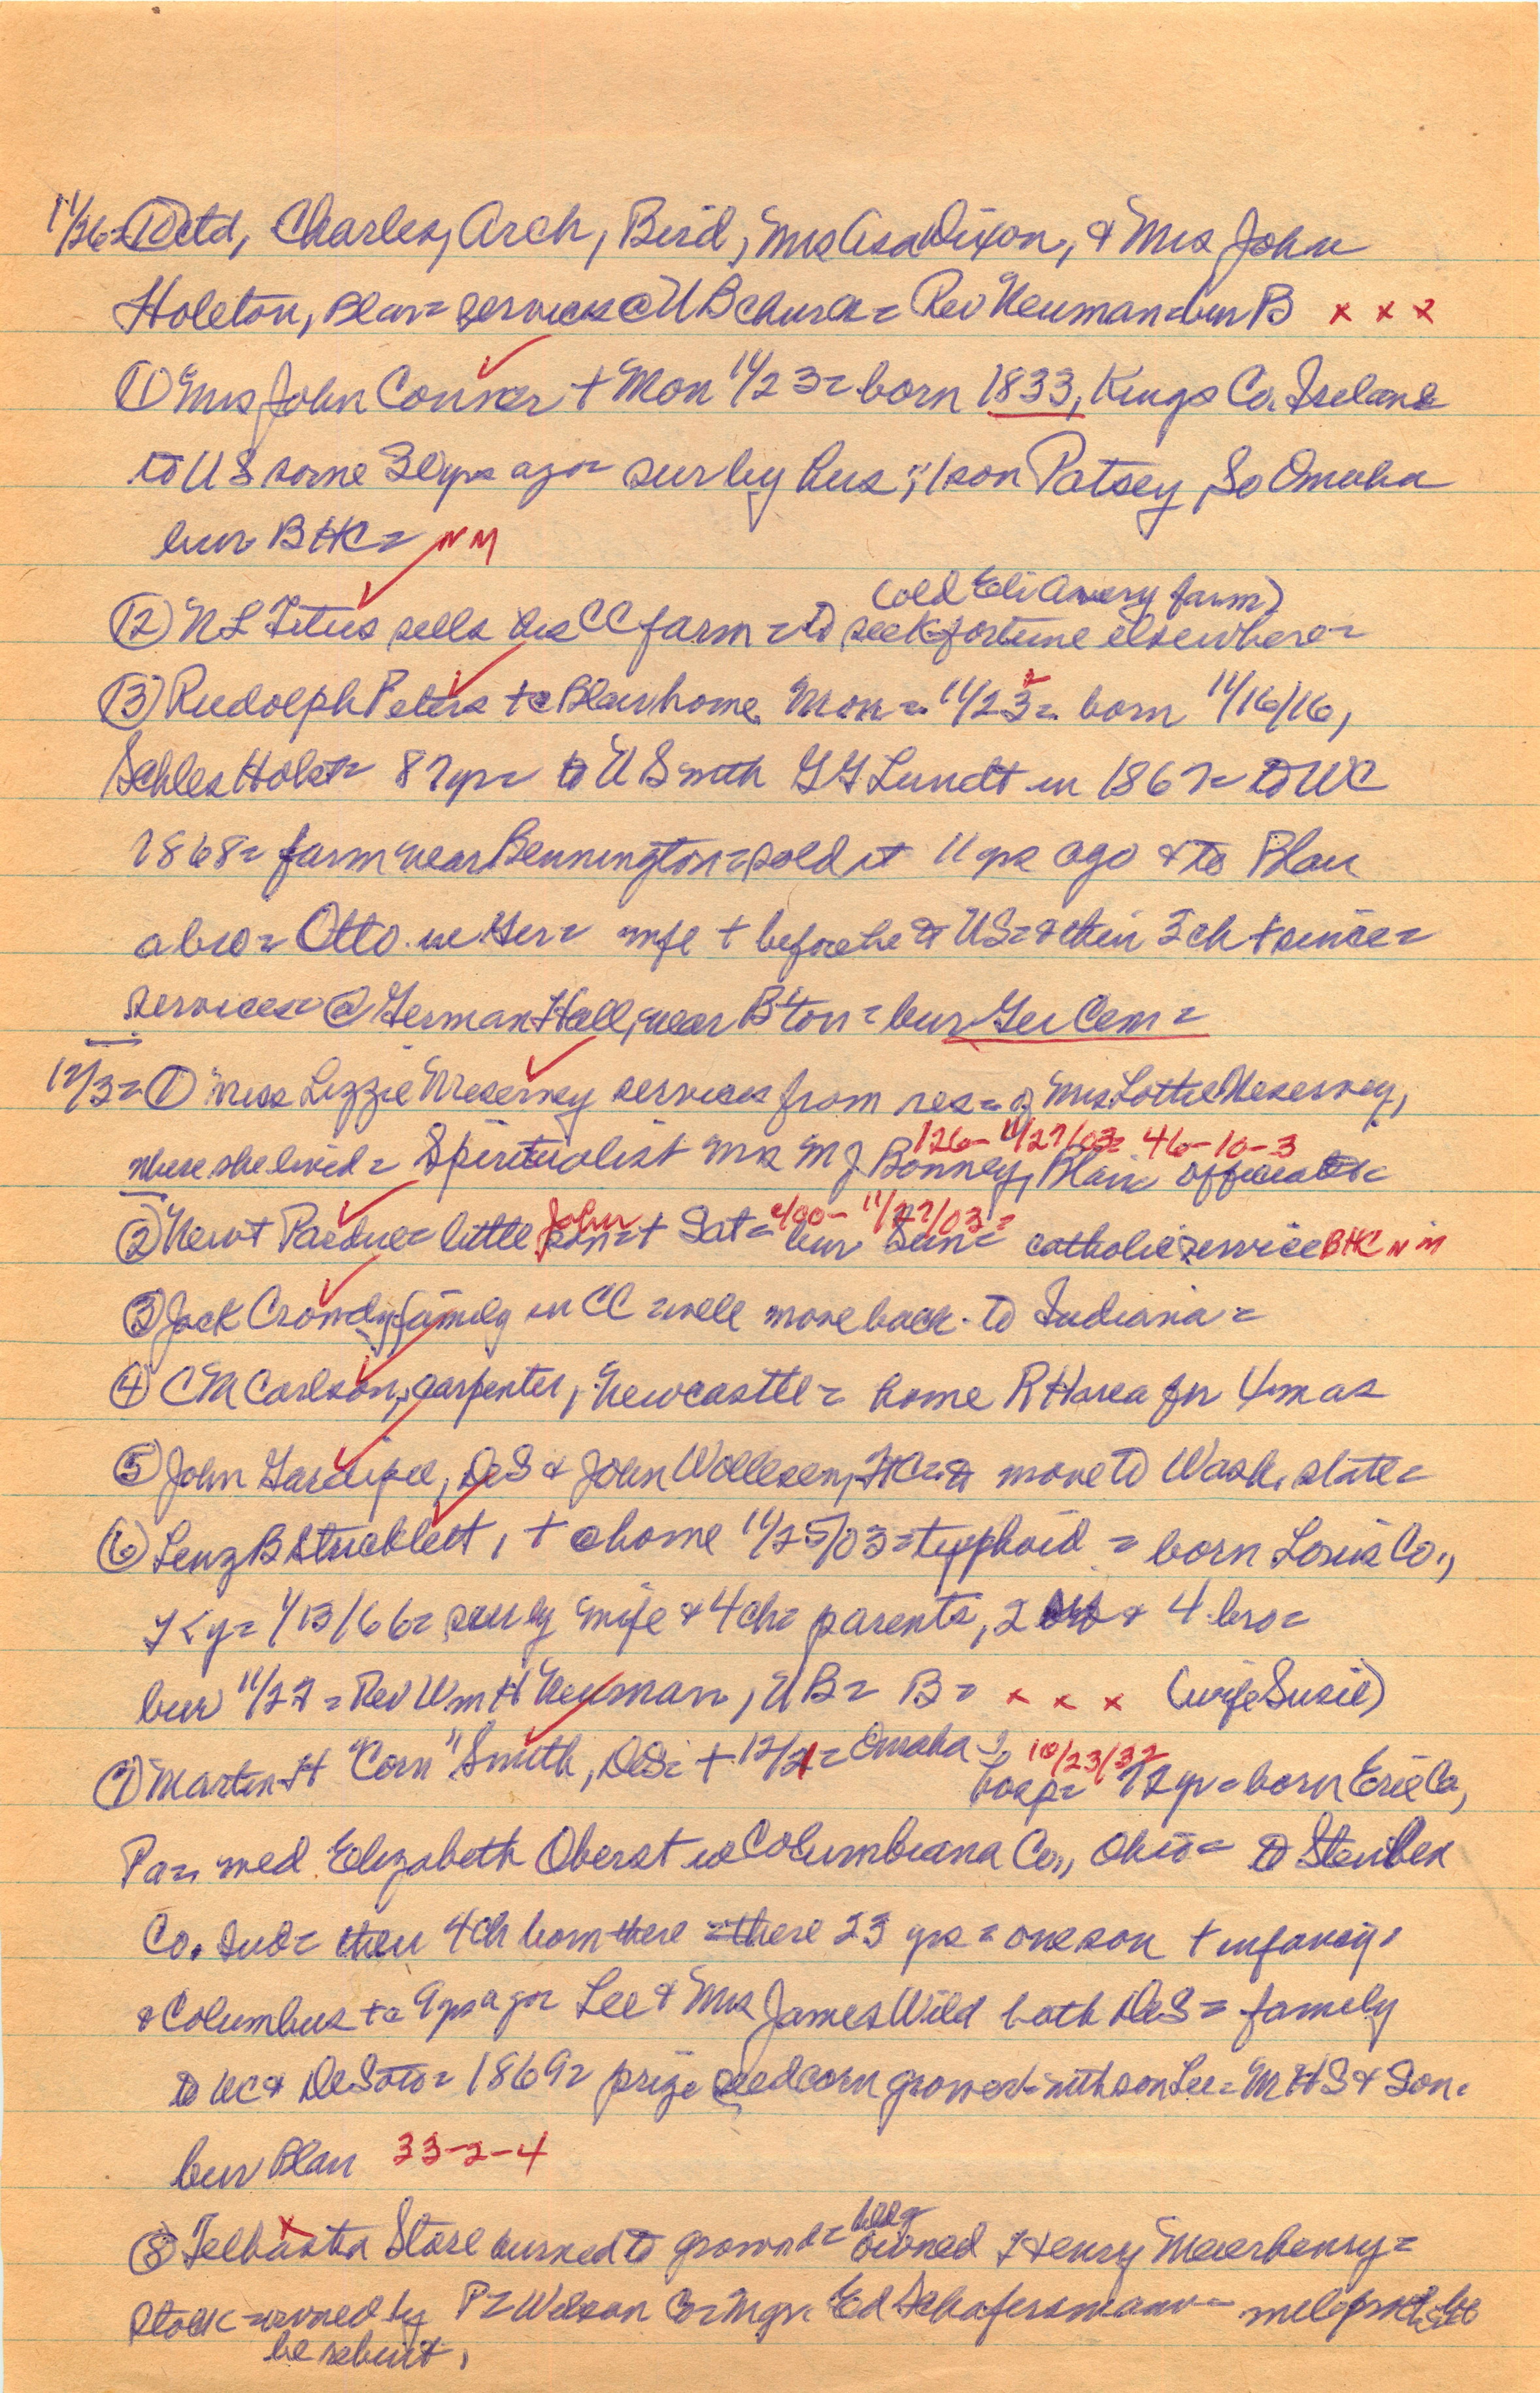 11/26= ⑩ctd, Charles, Arch, Bird, Mrs Asa Dixon, & Mrs John
Holeton, Blair= services @ UB church= Rev Neuman= bur B x x x
⑪ Mrs John Conner + Mon 11/23= born 1833, Kings Co. Ireland
to US some 30yrs ago= sur by hus; 1 son Patsey, So Omaha
bur BHC= NM
(old Eli Avery farm)
⑫ NL Titus sells his CC farm= to seek fortune elsewhere=
⑬ Rudolph Peters + @ Blair home Mon= 11/23= born 11/16/16,
Schles Holst= 87yr= to US with GG Lundt in 1867= to WC
1868= farm near Bennington= sold it 11 yrs ago & to Blair
a bro= Otto in Ger= wife + before he to US= & their 3 ch + since=
services= @ German Hall, near B'ton= bur Ger Cem=
12/3= ① Miss Lizzie Meservey services from res= of Mrs Lottie Meservey,
126- 11/27/03= 46-10-3
where she lived= Spiritualist Mrs M J Bonney, Blair officiates=
John 4/00- 11/27/03=
② Newt Pardue= little son + Sat= bur Sun= catholic service BHC NM
③ Jack Crowdy family in CC= will move back to Indiana=
④ CM Carlson, carpenter, Newcastle= home RH area for 4 mos
⑤ John, DeS & John Wollesen, FC= to move to Wash. state=
⑥ Lenz B Stricklett, + @ home 11/25/03= typhoid= born Lewis Co.,
Ky= 1/13/66= sur by wife & 4 ch= parents, 2 & 4 bro=
bur 11/27= Rev Wm H Neuman, UB= B= x x x (wife Susie)
⑦ Martin H "Corn" Smith, DeS= + 12/1= Omaha
hosp= 10/23/32 72yr= born Erie Co,
Pa= wed Elizabeth Oberst in Columbiana Co., Ohio= to Steuben
Co. Ind= their 4 ch born there= there 23 yrs= one son + infancy,
& Columbus + @ 9 yrs ago= Lee & Mrs James Wild both DeS= family
to WC & DeSoto= 1869= prize seed corn grower= with son Lee= MHS & Son.
bur Blair 33-2-4
⑧ Telbasta Store burned to ground= bldg owned Henry Meierhenry=
stock= owned by PZ Wilson Co= Mgr. Ed Schafersmann=
be rebuilt,